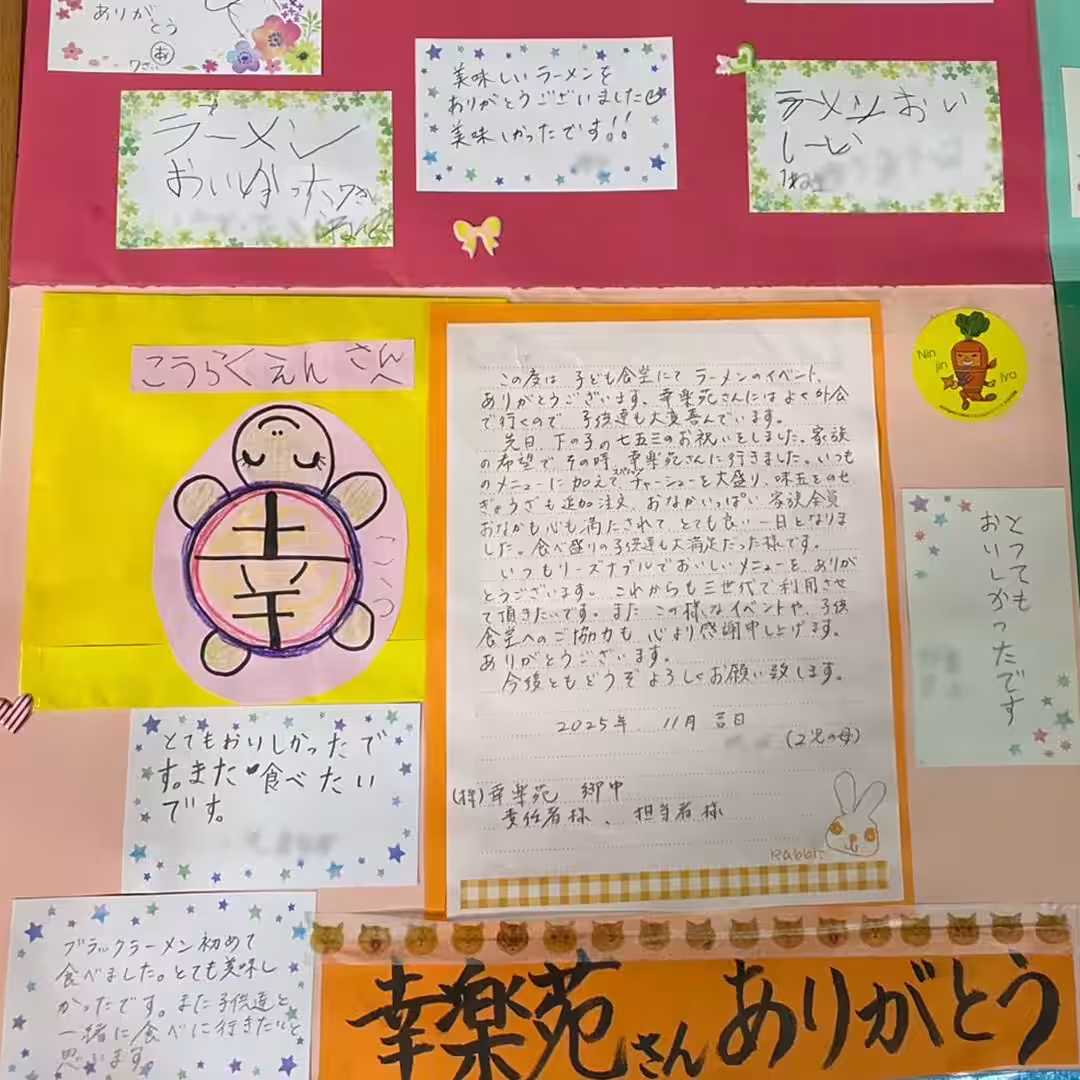 ありが
とう
美味しいラーメンを
ありがとうございました
美味しかったです!!
ラーメン
おいしかった
ラーメンおい
しーい
こうらくえん さん
幸
こう
この度は 子ども食堂にて ラーメンのイベント、
ありがとうございます。幸楽苑さんにはよく外食
で行くので 子供達も大変喜んでいます。
先日、下の子の七五三のお祝いをしました。家族
の希望で その時、幸楽苑さんに行きました。いつも
のメニューに加えて チャーシューを大盛り、味玉をのせ
ぎょうざも追加注文、おなかいっぱい 家族全員
おなかも心も満たされて とても良い一日となりま
した。食べ盛りの子供達も大満足だった様です。
いつもリーズナブルでおいしいメニューを、ありが
とうございます。これからも三世代で利用させ
て頂きたいです。また この様なイベントや、子供
食堂へのご協力も 心より感謝申し上げます。
ありがとうございます。
今後ともどうぞよろしくお願い致します。
2025年 11月 吉日
(2児の母)
(株)幸楽苑 御中
責任者様、担当者様
Rabbit
Nin
jin
iya
とっても
おいしかったです
とてもおいしかったで
す。また 食べたい
です。
ブラックラーメン初めて
食べました。とても美味し
かったです。また子供達と
一緒に食べに行きたいと
思います。
幸楽苑さんありがとう